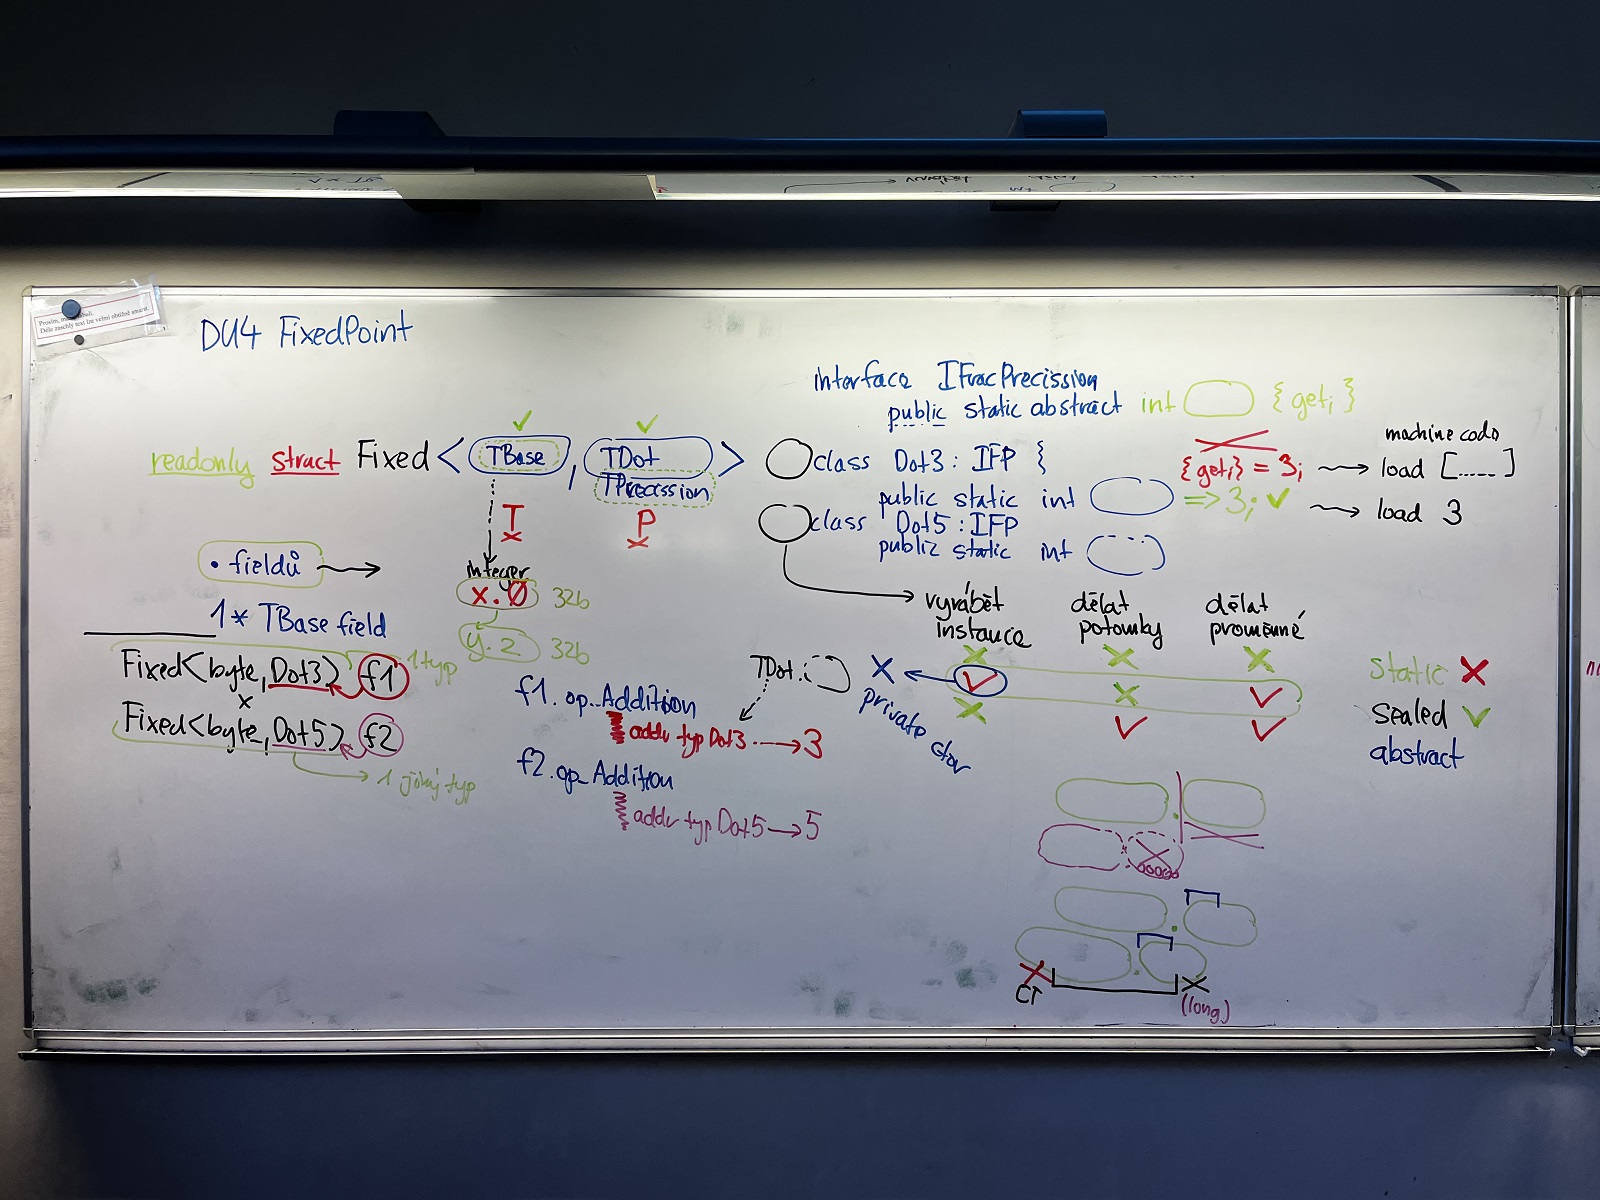 DU4 FixedPoint
readonly struct Fixed < TBase , TDot >
TPrecission
T
P
• fieldů
1* TBase field
integer
x.0 32b
y.z 32b
Fixed<byte,Dot3> f1
1 typ
x
Fixed<byte,Dot5> f2
1 jiný typ
interface IFracPrecission
public static abstract int {get;}
class Dot3 : IFP {
{get;} = 3;
public static int => 3;
class Dot5 : IFP
public static int
machine code
load [.....]
load 3
vyrábět instance
dělat potomky
dělat proměnné
TDot.
X
private ctor
f1.op_Addition
addr typ Dot3 → 3
f2.op_Addition
addr typ Dot5 → 5
static
sealed
abstract
CT
(long)